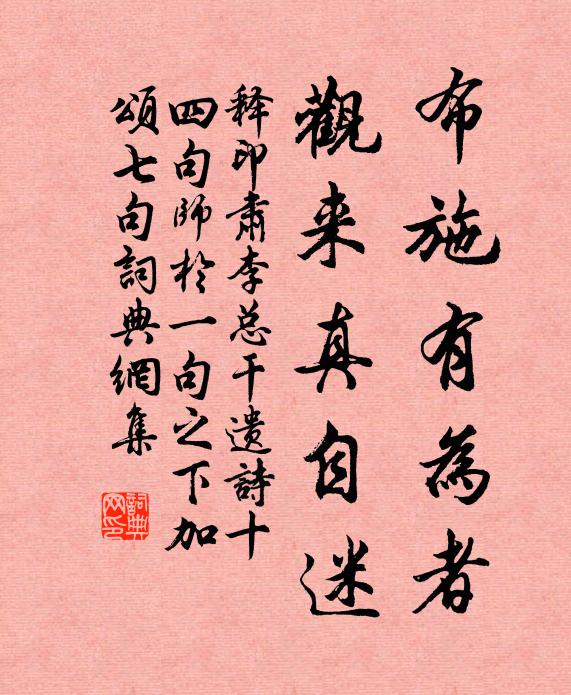 布施有為者
觀来真自迷
释印肃李总干遗詩十
四句師於一句之下加
頌七句詞典網集
詞典網印